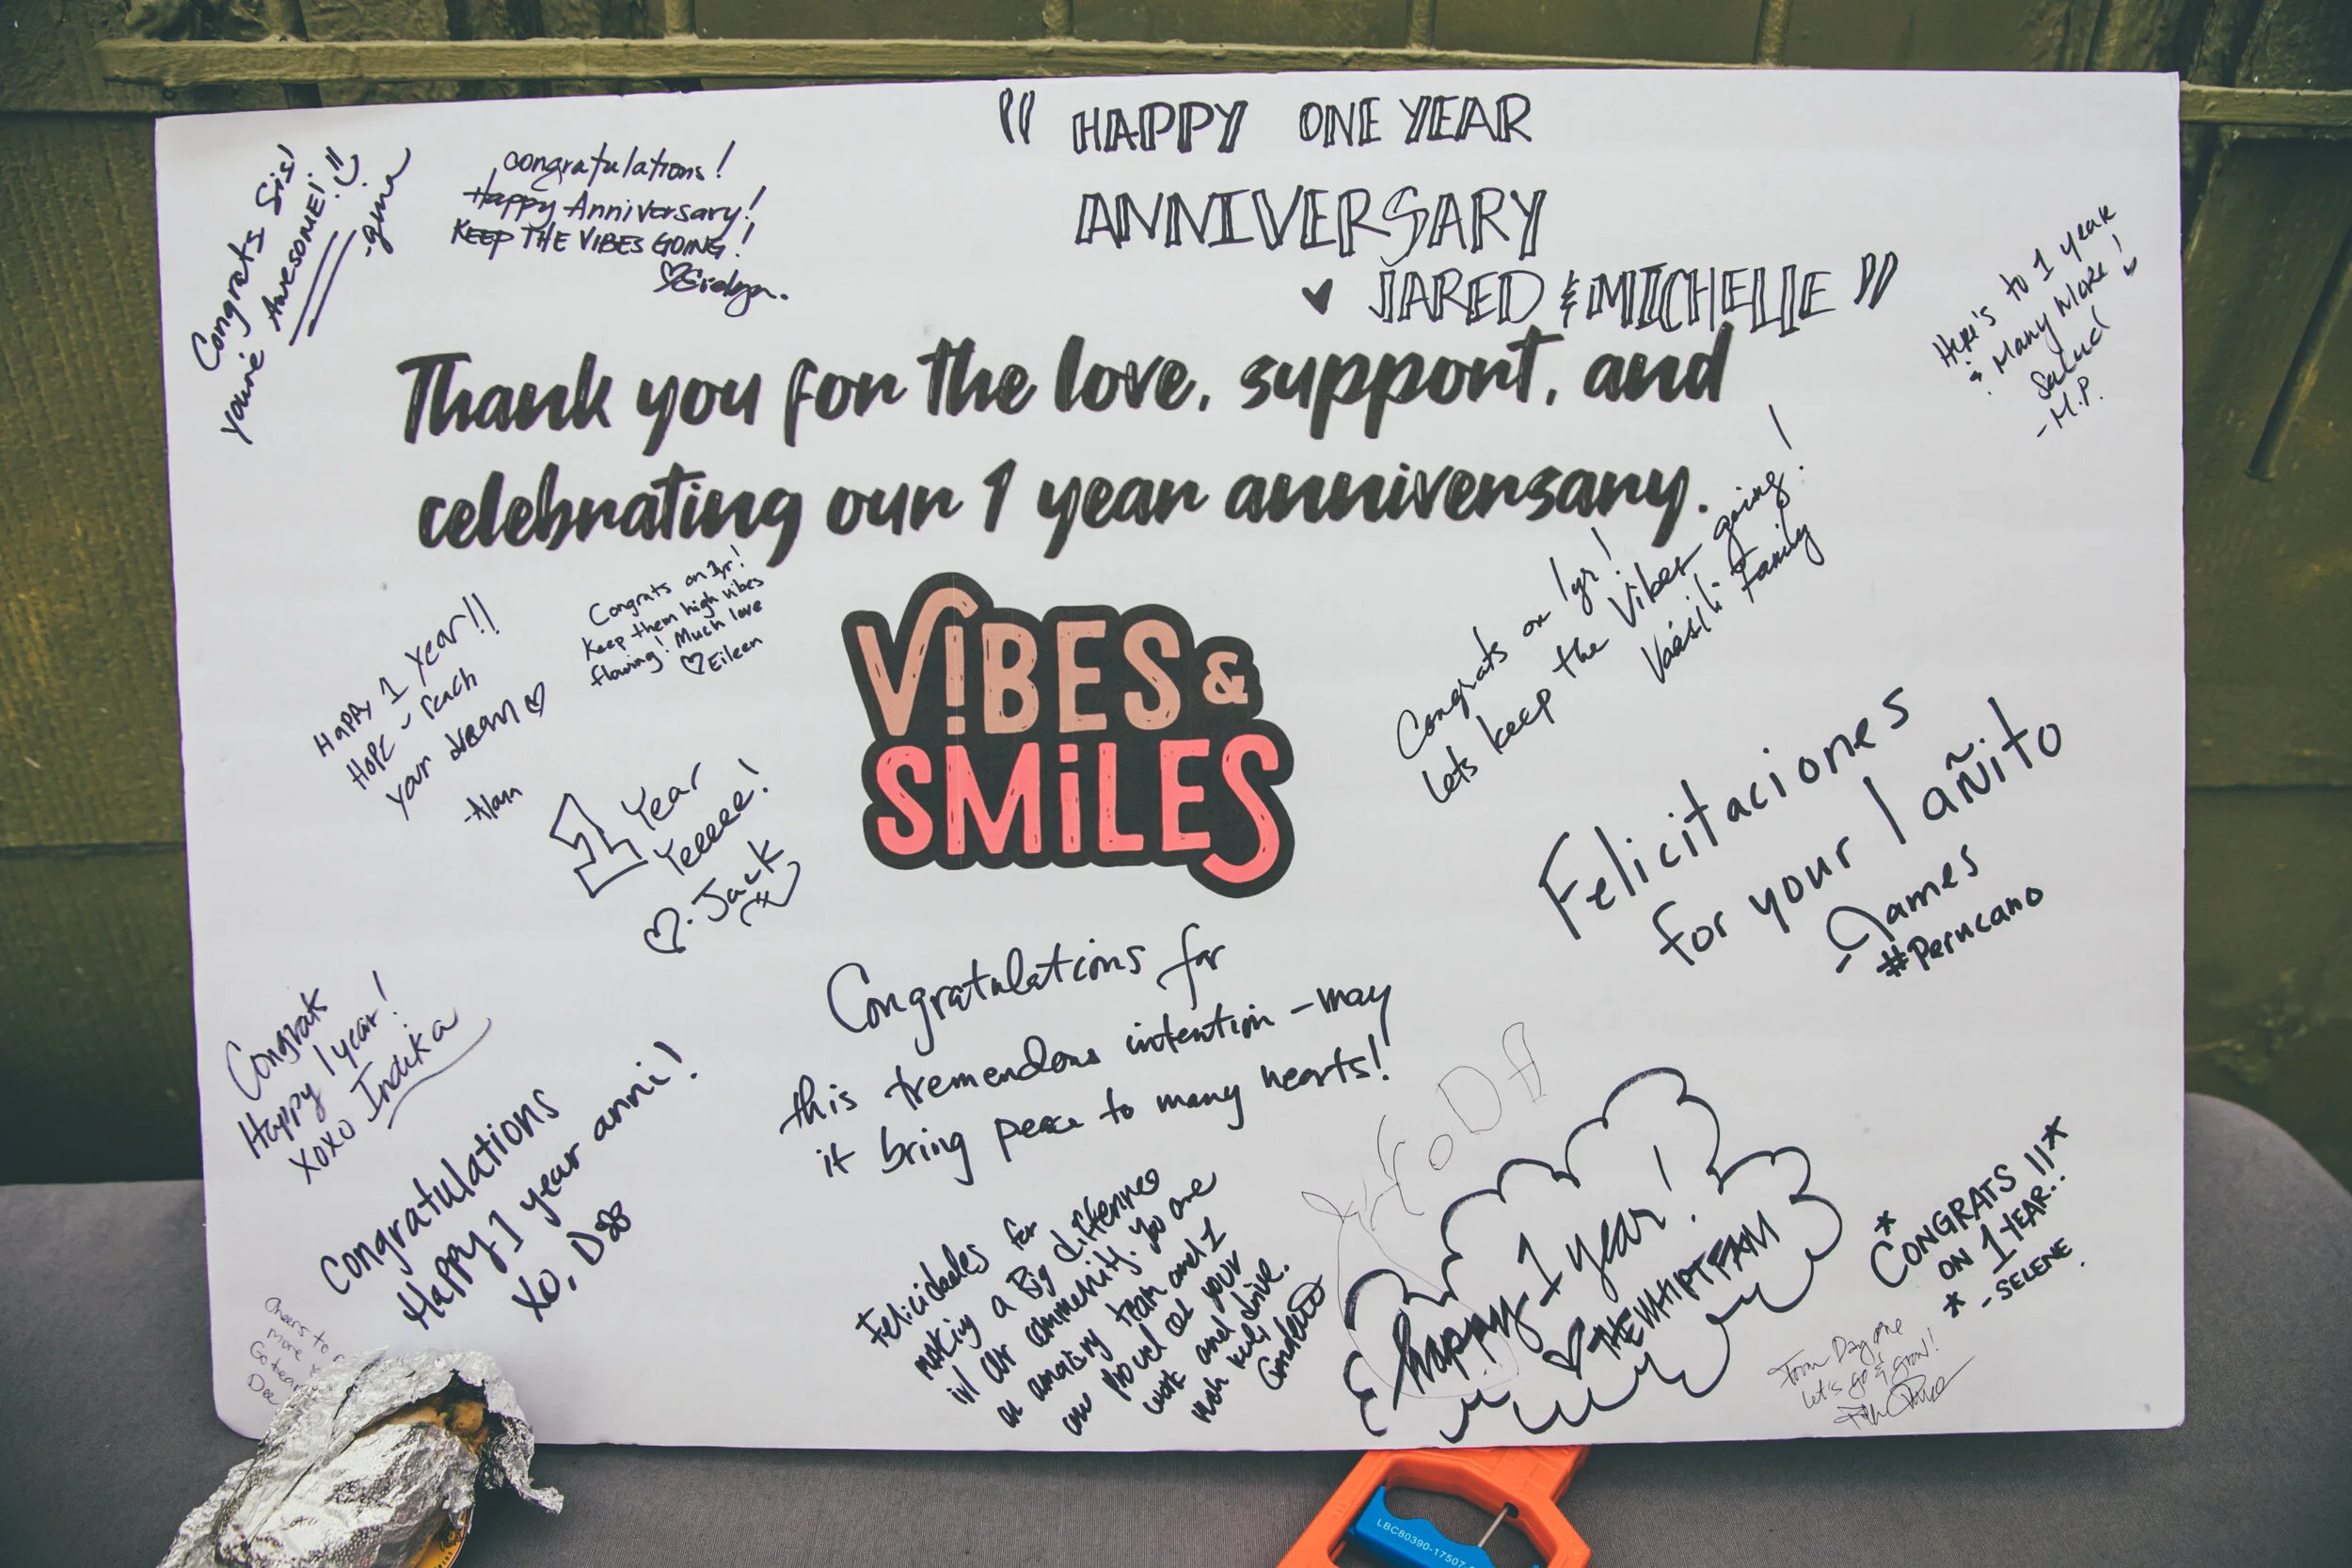 " HAPPY ONE YEAR
ANNIVERSARY
JARED & MICHELLE "
Congrats Sis!
you're Awesome!!
-gina
congratulations!
Happy Anniversary!
KEEP THE VIBES GOING!
Here's to 1 year
& Many More!
Salud
-M.P.
Thank you for the love, support, and
celebrating our 1 year anniversary.
VIBES &
SMiLES
HAPPY 1 Year!!
HOPE reach
your dream
-Alan
Congrats on 1yr!
Keep them high vibes
flowing! Much love
Eileen
1 Year
Yeeeee!
Jack
Congrats on 1yr!
Lets keep the Vibes going!
Family
Felicitaciones
for your 1 añito
-James
#Perucano
Congratulations for
this tremendous intention - may
it bring peace to many hearts!
Congrats
Happy 1 year!
XOXO Indika
Congratulations
Happy 1 year anni!
Xo, Dee
Cheers to
more
Go team
Dee
Felicidades for
making a Big difference
in our community. You are
an amazing team and I
am proud of your
work and drive.
Happy 1 year!
THEWHIPTFAM
* CONGRATS !!*
ON 1 YEAR!!
* -SELENE
From Day one
Let's go & grow!
LBC80390-17507